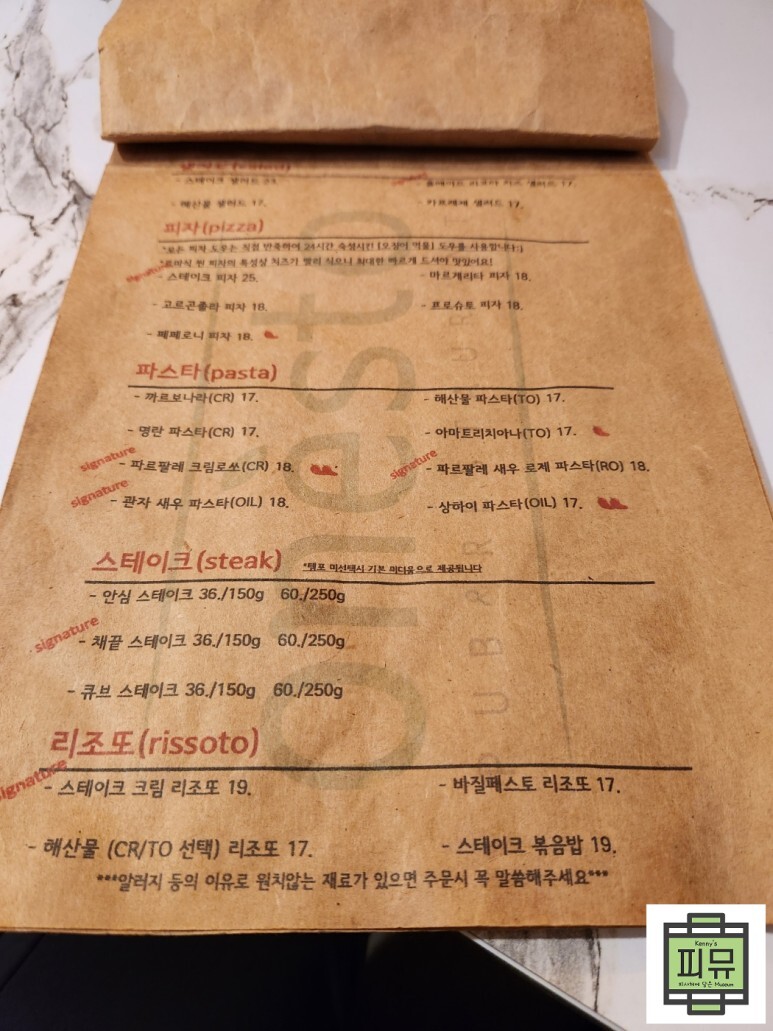 (salad)
- 스테이크 샐러드 23.
signature
리코타 치즈 샐러드 17.
- 해산물 샐러드 17.
- 카프레제 샐러드 17.
피자(pizza)
*모든 피자 도우는 직접 반죽하여 24시간 숙성시킨 (오징어 먹물) 도우를 사용합니다:)
피자의 특성상 치즈가 빨리 식으니 최대한 빠르게 드셔야 맛있어요!
signature
- 스테이크 피자 25.
- 마르게리타 피자 18.
- 고르곤졸라 피자 18.
- 프로슈토 피자 18.
- 페페로니 피자 18.
파스타(pasta)
- 까르보나라(CR) 17.
- 해산물 파스타(TO) 17.
- 명란 파스타(CR) 17.
- 아마트리치아나(TO) 17.
signature
- 파르팔레 크림로쏘(CR) 18.
signature
- 파르팔레 새우 로제 파스타(RO) 18.
signature
- 관자 새우 파스타(OIL) 18.
- 상하이 파스타(OIL) 17.
스테이크(steak) *템포 미선택시 기본 미디움으로 제공됩니다
- 안심 스테이크 36./150g 60./250g
signature
- 채끝 스테이크 36./150g 60./250g
- 큐브 스테이크 36./150g 60./250g
리조또(rissoto)
signature
- 스테이크 크림 리조또 19.
- 바질페스토 리조또 17.
- 해산물 (CR/TO 선택) 리조또 17.
- 스테이크 볶음밥 19.
***알러지 등의 이유로 원치않는 재료가 있으면 주문시 꼭 말씀해주세요***
onesto
Kenny's
피뮤
피사체에 담은 Museum